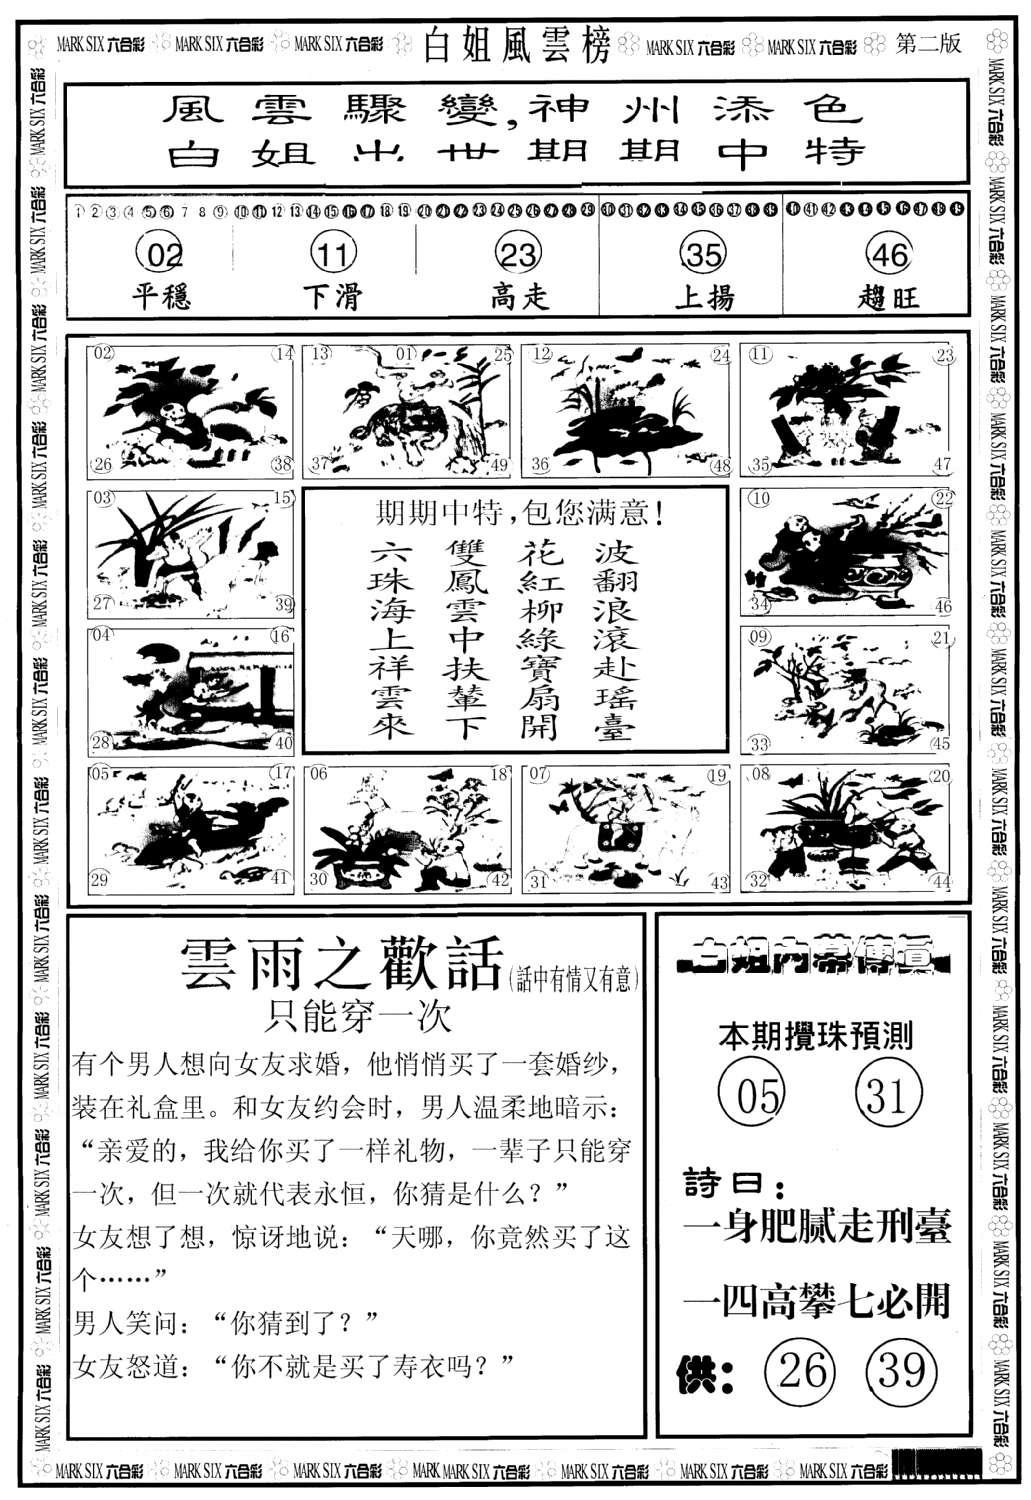 MARK SIX 六合彩 MARK SIX 六合彩 MARK SIX 六合彩 白姐風雲榜 MARK SIX 六合彩 MARK SIX 六合彩 第二版
風雲驟變,神州添色
白姐出世期期中特
1 2 3 4 5 6 7 8 9 10 11 12 13 14 15 16 17 18 19 20 21 22 23 24 25 26 27 28 29 30 31 32 33 34 35 36 37 38 39 40 41 42 43 44 45 46 47 48 49
02 11 23 35 46
平穩 下滑 高走 上揚 趨旺
02 14 13 01 25 12 24 11 23
26 38 37 49 36 48 35 47
03 15 10 22
27 39 34 46
04 16 09 21
28 40 33 45
05 17 06 18 07 19 08 20
29 41 30 42 31 43 32 44
期期中特,包您满意!
六珠海上祥雲來
雙鳳雲中扶輦下
花紅柳綠寶扇開
波翻浪滾赴瑶臺
雲雨之歡話(話中有情又有意)
只能穿一次
有个男人想向女友求婚，他悄悄买了一套婚纱，
装在礼盒里。和女友约会时，男人温柔地暗示：
“亲爱的，我给你买了一样礼物，一辈子只能穿
一次，但一次就代表永恒，你猜是什么？”
女友想了想，惊讶地说：“天哪，你竟然买了这
个……”
男人笑问：“你猜到了？”
女友怒道：“你不就是买了寿衣吗？”
白姐内幕傳真
本期攪珠預測
05 31
詩曰：
一身肥腻走刑臺
一四高攀七必開
供： 26 39
MARK SIX 六合彩 MARK SIX 六合彩 MARK SIX 六合彩 MARK MARK SIX 六合彩 MARK SIX 六合彩 MARK SIX 六合彩 MARK SIX 六合彩